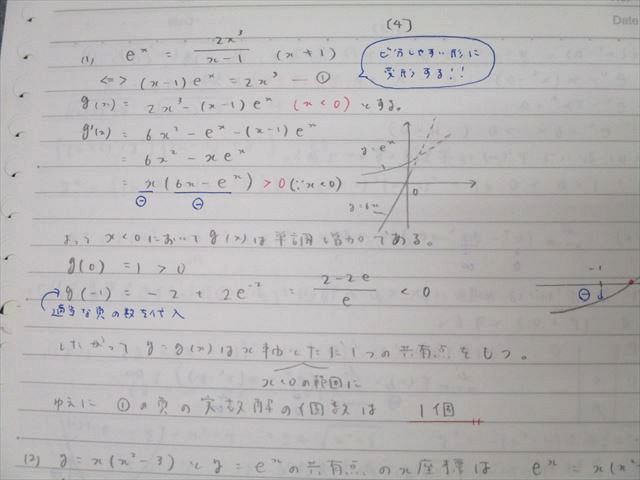 [4]
(1) e^x = 2x³/(x-1) (x≠1)
微分しやすい形に変形する!!
<=> (x-1)e^x = 2x³ — ①
g(x) = 2x³-(x-1)e^x (x<0)とする。
g'(x) = 6x²-e^x-(x-1)e^x
= 6x²-xe^x
= x(6x-e^x) > 0 (∵x<0)
⊖ ⊖
y=e^x
0
y=6x
よって x<0において g(x)は単調増加である。
g(0) = 1 > 0
g(-1) = -2 + 2e^-2 = (2-2e)/e < 0
適当な負の数を代入
-1
⊖
したがって y=g(x)はx軸とただ1つの共有点をもつ。
x<0の範囲に
ゆえに ①の負の実数解の個数は 1個
(2) y=x(x²-3)とy=e^xの共有点のx座標は e^x=x(x²
Date